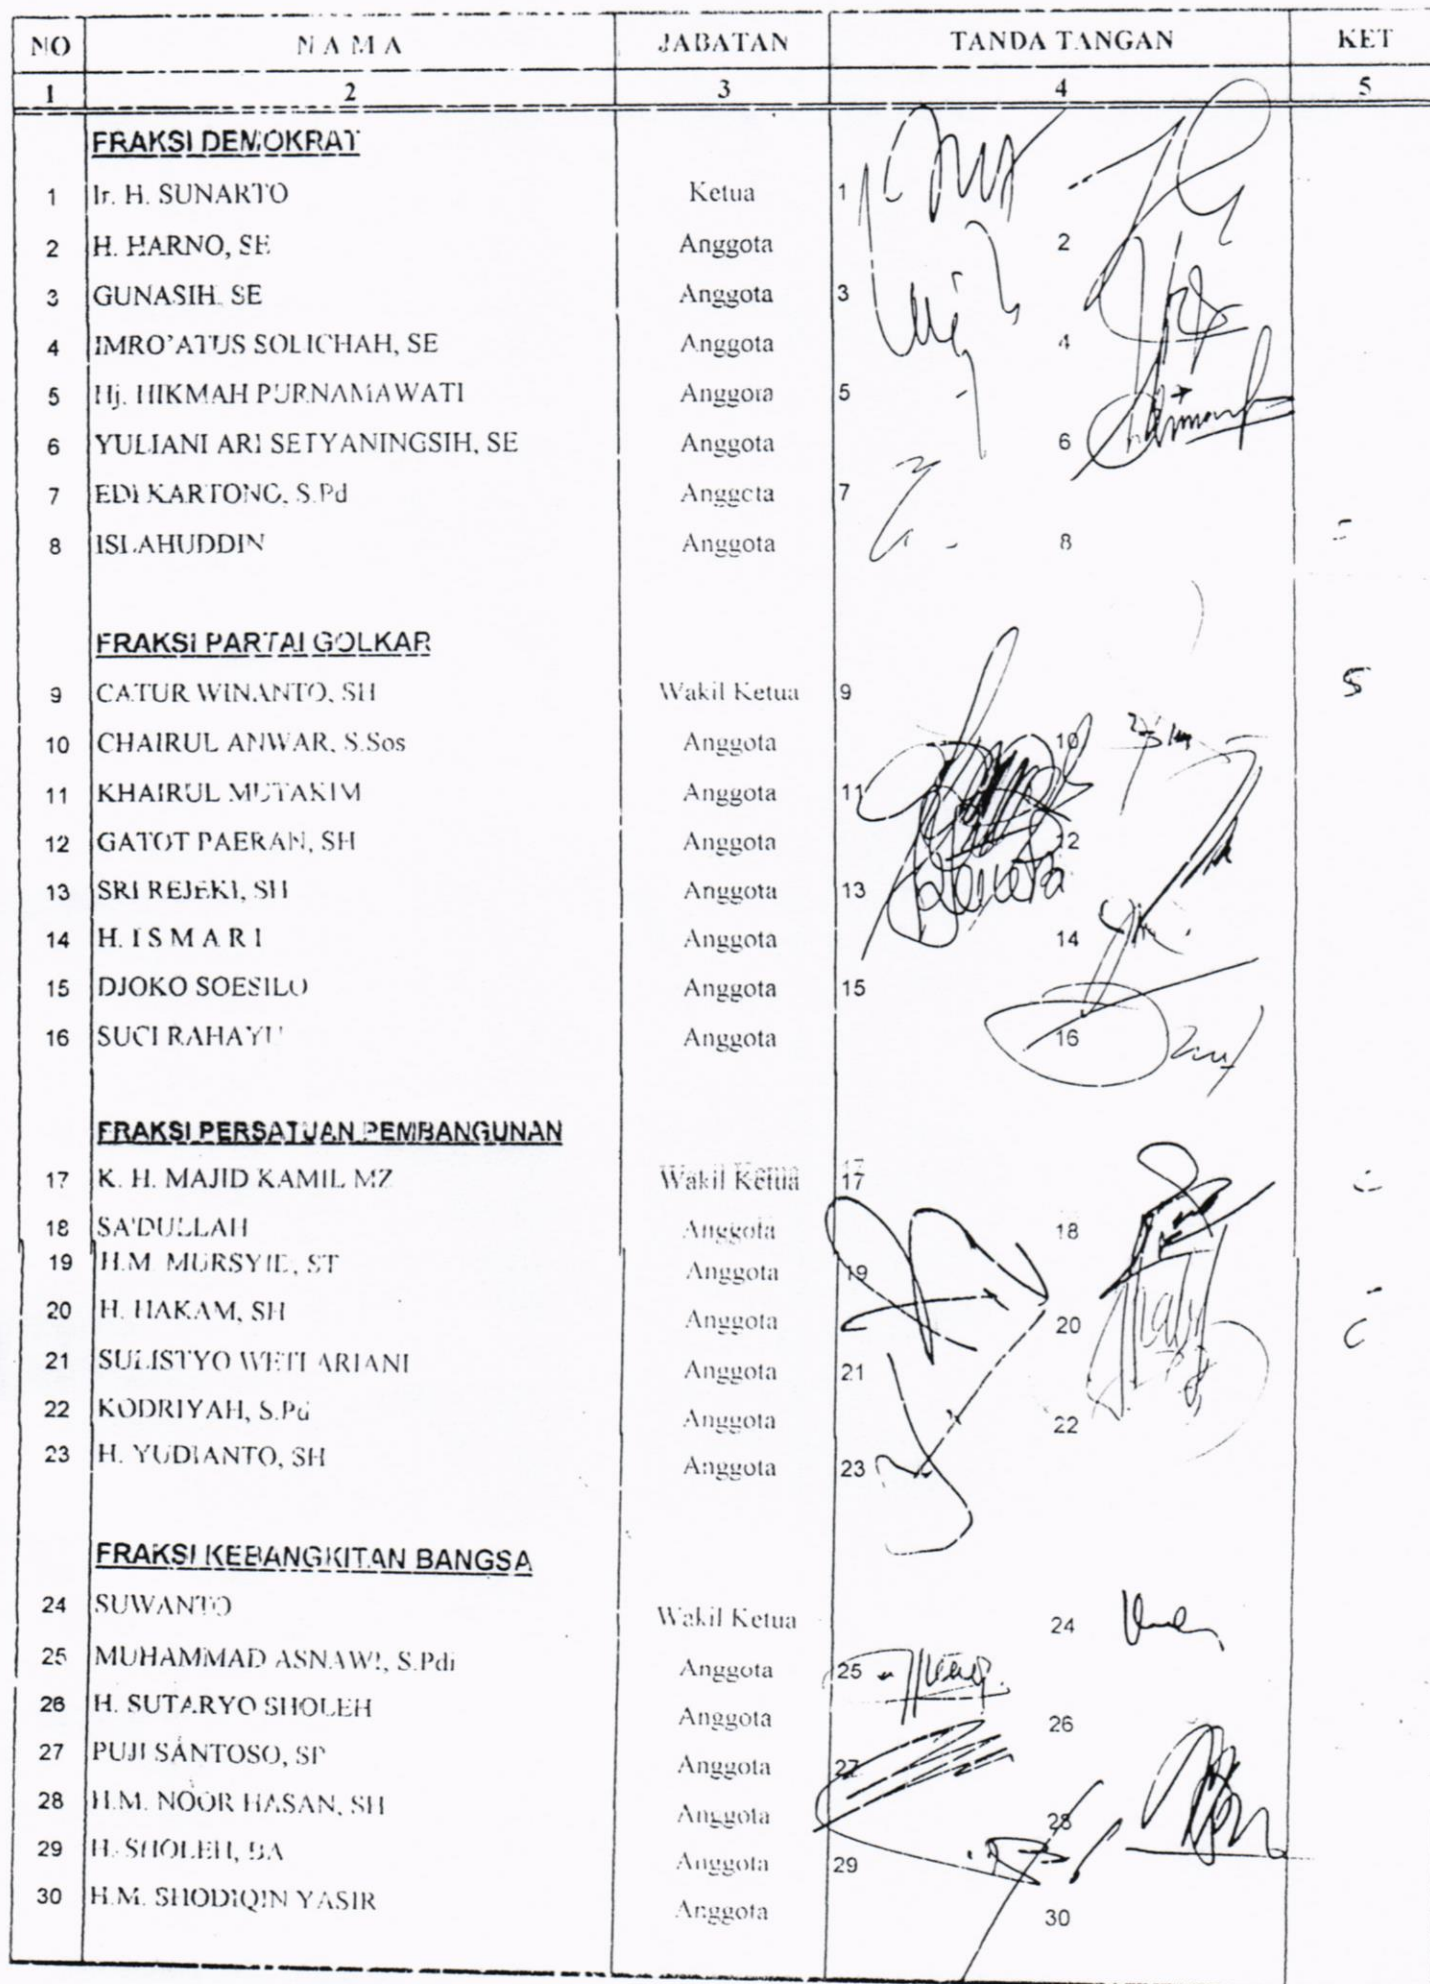 NO NAMA JABATAN TANDA TANGAN KET
1 2 3 4 5
FRAKSI DEMOKRAT
1 Ir. H. SUNARTO Ketua 1
2 H. HARNO, SE Anggota 2
3 GUNASIH, SE Anggota 3
4 IMRO'ATUS SOLICHAH, SE Anggota 4
5 Hj. HIKMAH PURNAMAWATI Anggota 5
6 YULIANI ARI SETYANINGSIH, SE Anggota 6
7 EDI KARTONO, S.Pd Anggota 7
8 ISLAHUDDIN Anggota 8
FRAKSI PARTAI GOLKAR
9 CATUR WINANTO, SH Wakil Ketua 9 S
10 CHAIRUL ANWAR, S.Sos Anggota 10
11 KHAIRUL MUTAKIM Anggota 11
12 GATOT PAERAN, SH Anggota 12
13 SRI REJEKI, SH Anggota 13
14 H. I S M A R I Anggota 14
15 DJOKO SOESILO Anggota 15
16 SUCI RAHAYU Anggota 16
FRAKSI PERSATUAN PEMBANGUNAN
17 K. H. MAJID KAMIL MZ Wakil Ketua 17
18 SA'DULLAH Anggota 18
19 H.M. MURSYID, ST Anggota 19
20 H. HAKAM, SH Anggota 20
21 SULISTYO WETI ARIANI Anggota 21
22 KODRIYAH, S.Pd Anggota 22
23 H. YUDIANTO, SH Anggota 23
FRAKSI KEBANGKITAN BANGSA
24 SUWANTO Wakil Ketua 24
25 MUHAMMAD ASNAWI, S.Pdi Anggota 25
26 H. SUTARYO SHOLEH Anggota 26
27 PUJI SANTOSO, SP Anggota 27
28 H.M. NOOR HASAN, SH Anggota 28
29 H. SHOLEH, BA Anggota 29
30 H.M. SHODIQIN YASIR Anggota 30